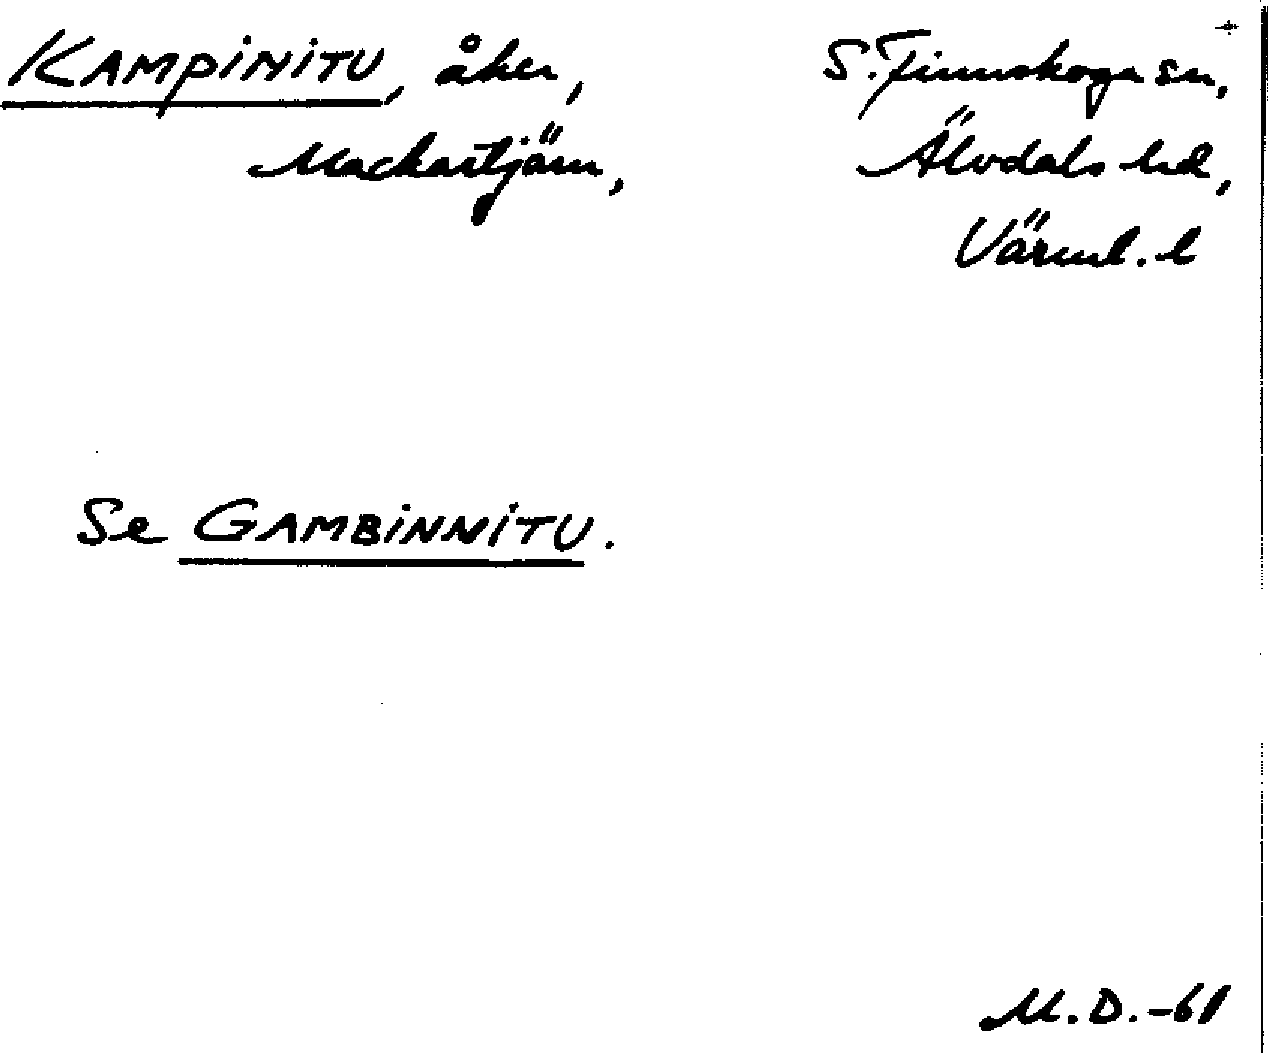 KAMPINITU, åker, S. Finnskoga sn,
Mackartjärn, Älvdals hd,
Värml. l
Se GAMBINNITU.
M.D.-61